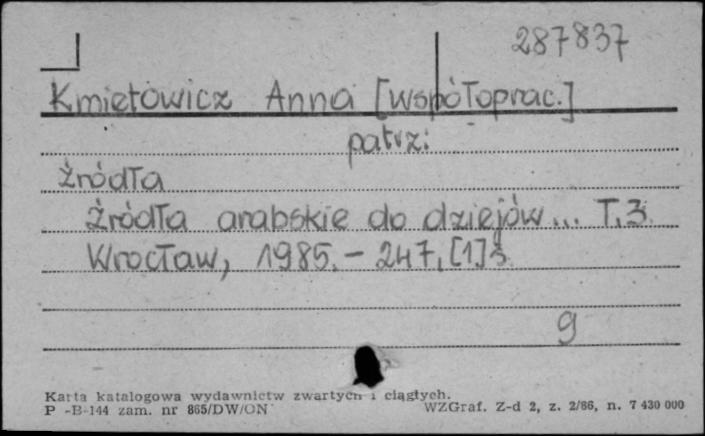 287837
Kmietowicz Anna [współoprac.]
patrz:
źródła
Źródła arabskie do dziejów... T.3.
Wrocław, 1985. - 247, [1] s.
9
Karta katalogowa wydawnictw zwartych i ciągłych.
P -B-144 zam. nr 865/DW/ON WZGraf. Z-d 2, z. 2/86, n. 7 430 000